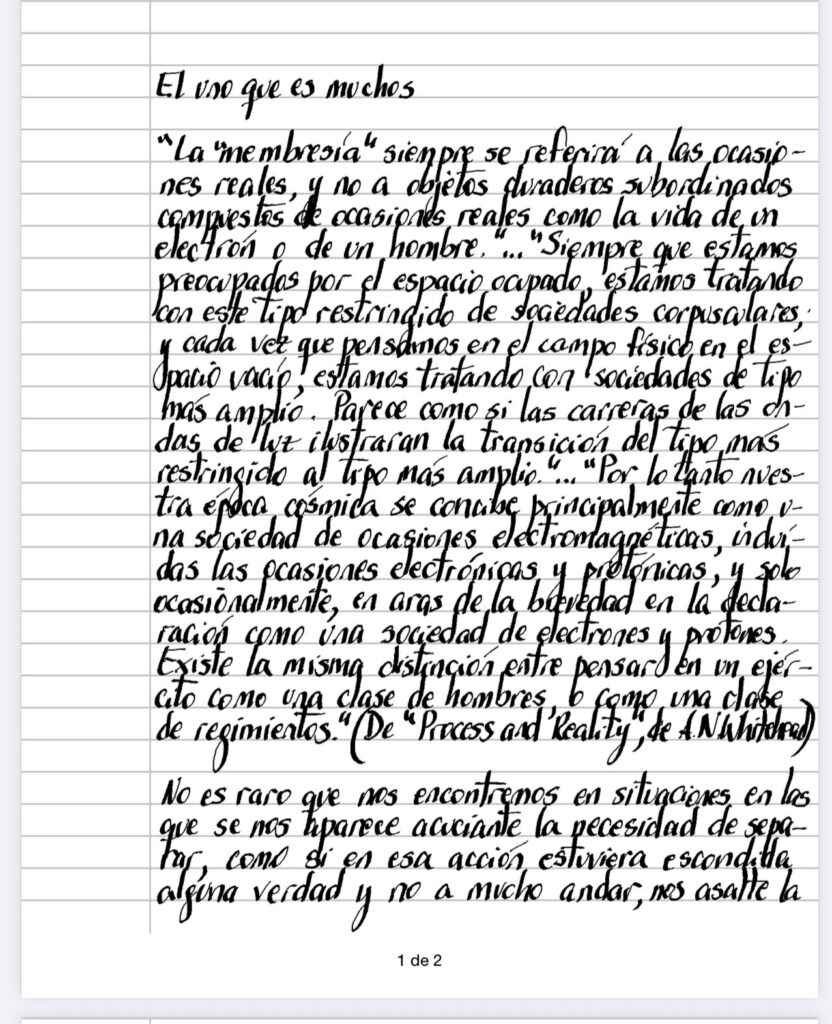 El uno que es muchos
"La "membresía" siempre se referirá a las ocasio-
nes reales, y no a objetos duraderos subordinados
compuestos de ocasiones reales como la vida de un
electrón o de un hombre."..."Siempre que estamos
preocupados por el espacio ocupado, estamos tratando
con este tipo restringido de sociedades corpusculares,
y cada vez que pensamos en el campo físico en el es-
pacio vacío, estamos tratando con sociedades de tipo
más amplio. Parece como si las carreras de las on-
das de luz ilustraran la transición del tipo más
restringido al tipo más amplio."..."Por lo tanto nues-
tra época cósmica se concibe principalmente como u-
na sociedad de ocasiones electromagnéticas, inclui-
das las ocasiones electrónicas y protónicas, y solo
ocasionalmente, en aras de la brevedad en la decla-
ración como una sociedad de electrones y protones.
Existe la misma distinción entre pensar en un ejér-
cito como una clase de hombres, o como una clase
de regimientos." (De "Process and Reality", de A.N Whitehead)
No es raro que nos encontremos en situaciones en las
que se nos aparece acuciante la necesidad de sepa-
rar, como si en esa acción estuviera escondida
alguna verdad y no a mucho andar, nos asalte la
1 de 2